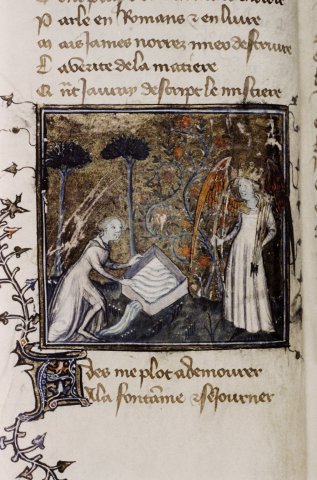 Parle en Romans et en livre
Mais james norrez mieo descrivre
La verite de la matiere
Qnt jauray descript le mistiere
Ades me plot a demourer
A la fontainne et sejourner